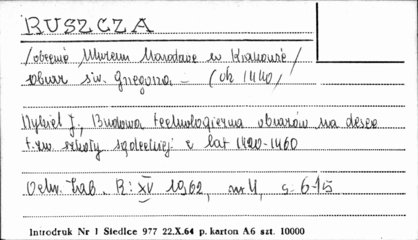 RUSZCZA
/obecnie Muzeum Narodowe w Krakowie/
obraz św. Grzegorza - (ok 1440)
Nykiel J., Budowa technologiczna obrazów na desce
t.zw. szkoły sądeckiej z lat 1420-1460
Ochr. Zab. R: XV 1962, nr 4, s. 6-15
Introdruk Nr 1 Siedlce 977 22.X.64 p. karton A6 szt. 10000